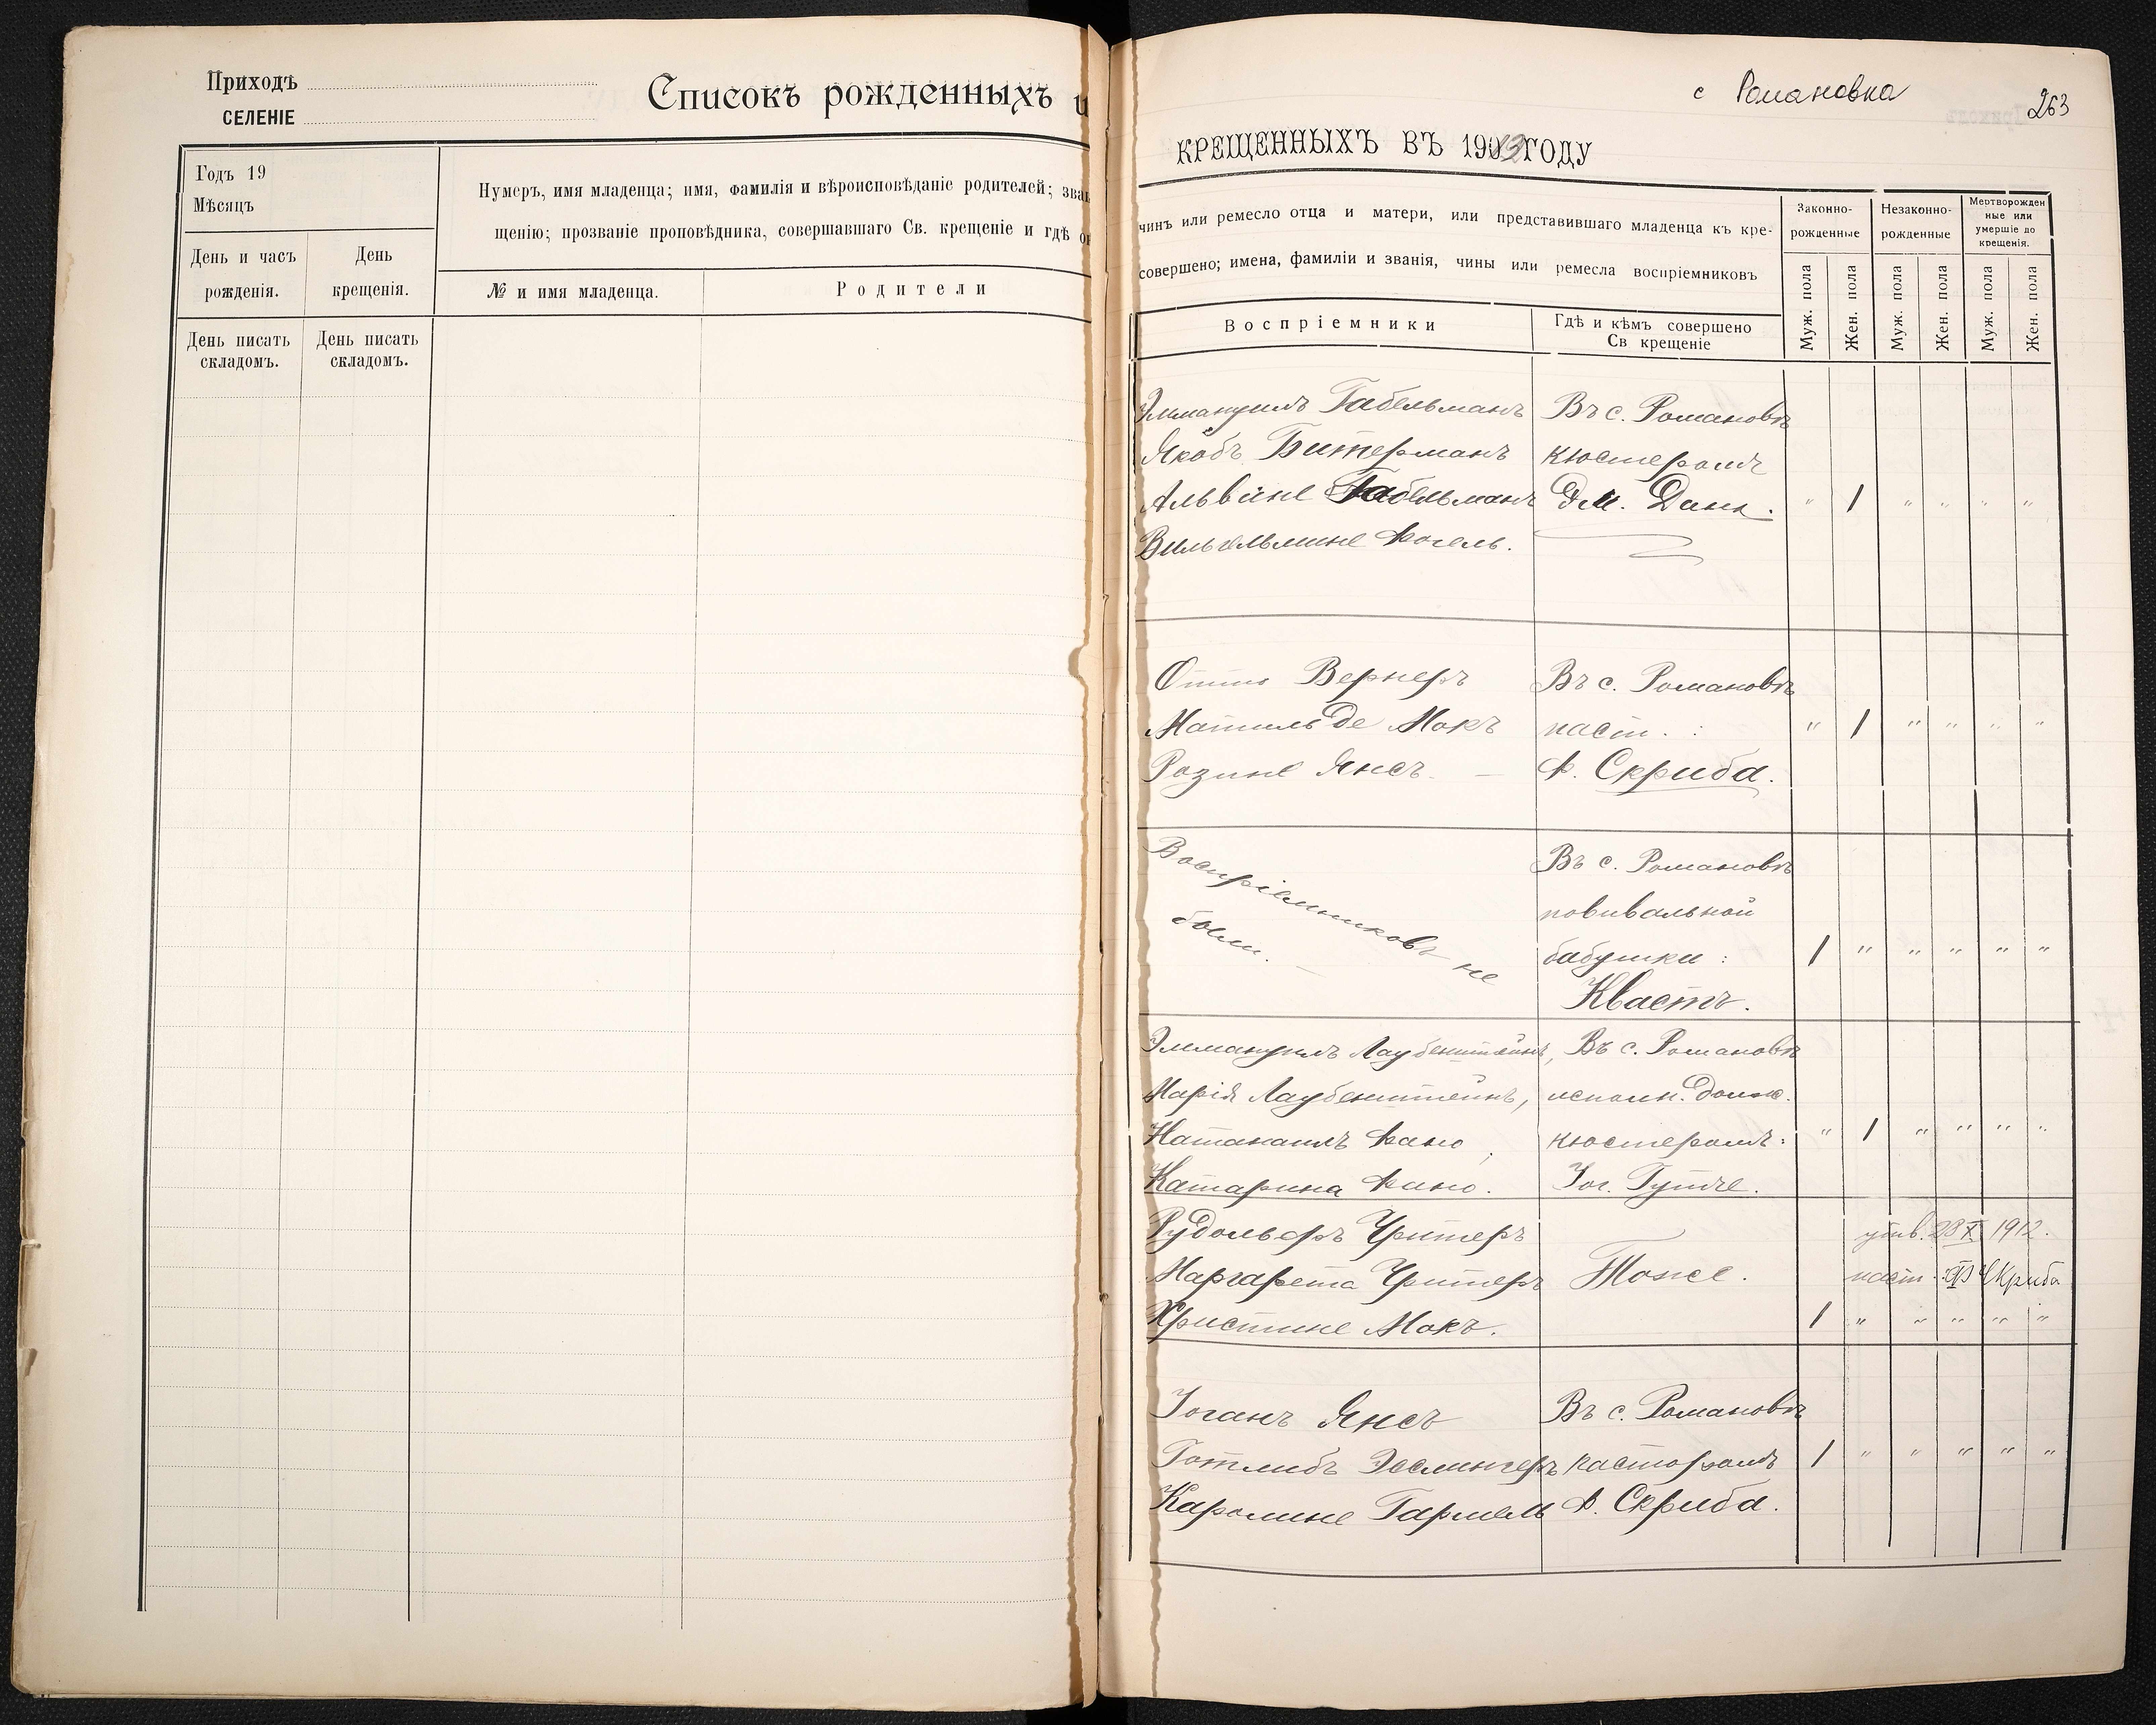 Приходъ
СЕЛЕНІЕ
Списокъ рожденныхъ и
Годъ 19
Мѣсяцъ
День и часъ рожденія.
День крещенія.
Нумеръ, имя младенца; имя, фамилія и вѣроисповѣданіе родителей; зван
щенію; прозваніе проповѣдника, совершавшаго Св. крещеніе и гдѣ он
№ и имя младенца.
Родители
День писать складомъ.
День писать складомъ.
с Романовка
263
КРЕЩЕННЫХЪ ВЪ 1913 ГОДУ
чинъ или ремесло отца и матери, или представившаго младенца къ кре-
совершено; имена, фамиліи и званія, чины или ремесла воспріемниковъ
Законно-рожденные
Незаконно-рожденные
Мертворожденные или умершіе до крещенія.
Воспріемники
Гдѣ и кѣмъ совершено Св крещеніе
Муж. пола
Жен. пола
Муж. пола
Жен. пола
Муж. пола
Жен. пола
Эммануилъ Габельманъ
Въ с. Романовкѣ
Якобъ Битерманъ
кюстеромъ
Альвине Габельманъ
" 1 " " " "
Вильгельмине Фогель.
Отто Вернеръ
Въ с. Романовкѣ
Матильде Мокъ
паст. :
" 1 " " " "
Розине Янсъ. —
Ф. Скриба.
Воспріемниковъ не
были. —
Въ с. Романовкѣ
повивальной
бабушки :
1 " " " " "
Квастъ.
Эммануилъ Лаубенштейнъ,
Въ с. Романовкѣ
Марія Лаубенштейнъ,
исполн. долж.
Натанаилъ
кюстеромъ:
" 1 " " " "
Катарина
Іог. Гутче.
Рудольфъ
утв. 28 X 1912.
Маргарета
Тоже.
паст. Ф Скриба
Христине Мокъ.
1 " " " " "
Іоганъ Янсъ
Въ с. Романовкѣ
Готлибъ Эслингеръ
пасторомъ
1 " " " " "
Каролине
Ф. Скриба.